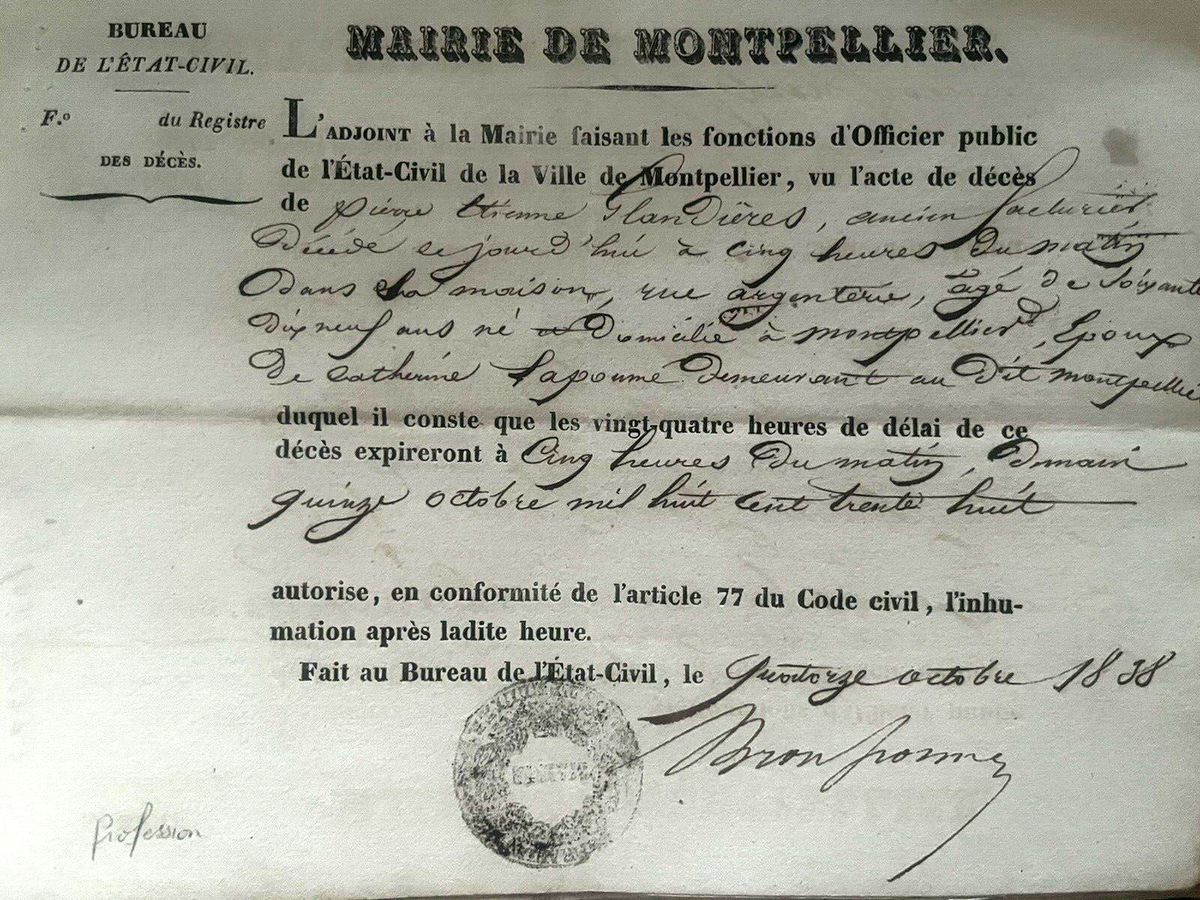 BUREAU
DE L'ÉTAT-CIVIL.
F.º du Registre
DES DÉCÈS.
MAIRIE DE MONTPELLIER.
L'ADJOINT à la Mairie faisant les fonctions d'Officier public
de l'État-Civil de la Ville de Montpellier, vu l'acte de décès
de pierre Etienne Glandières, ancien facturier
Décédé ce jourd'hui à cinq heures du matin
Dans sa maison, rue argenterie, âgé de soixante
dix neuf ans né Domicilié à montpellier, Epoux
De Catherine Lapoumé Demeurant au Dit montpellier
duquel il conste que les vingt-quatre heures de délai de ce
décès expireront à Cinq heures Du matin, Demain
quinze octobre mil huit cent trente huit
autorise, en conformité de l'article 77 du Code civil, l'inhu-
mation après ladite heure.
Fait au Bureau de l'État-Civil, le quatorze octobre 1838
profession